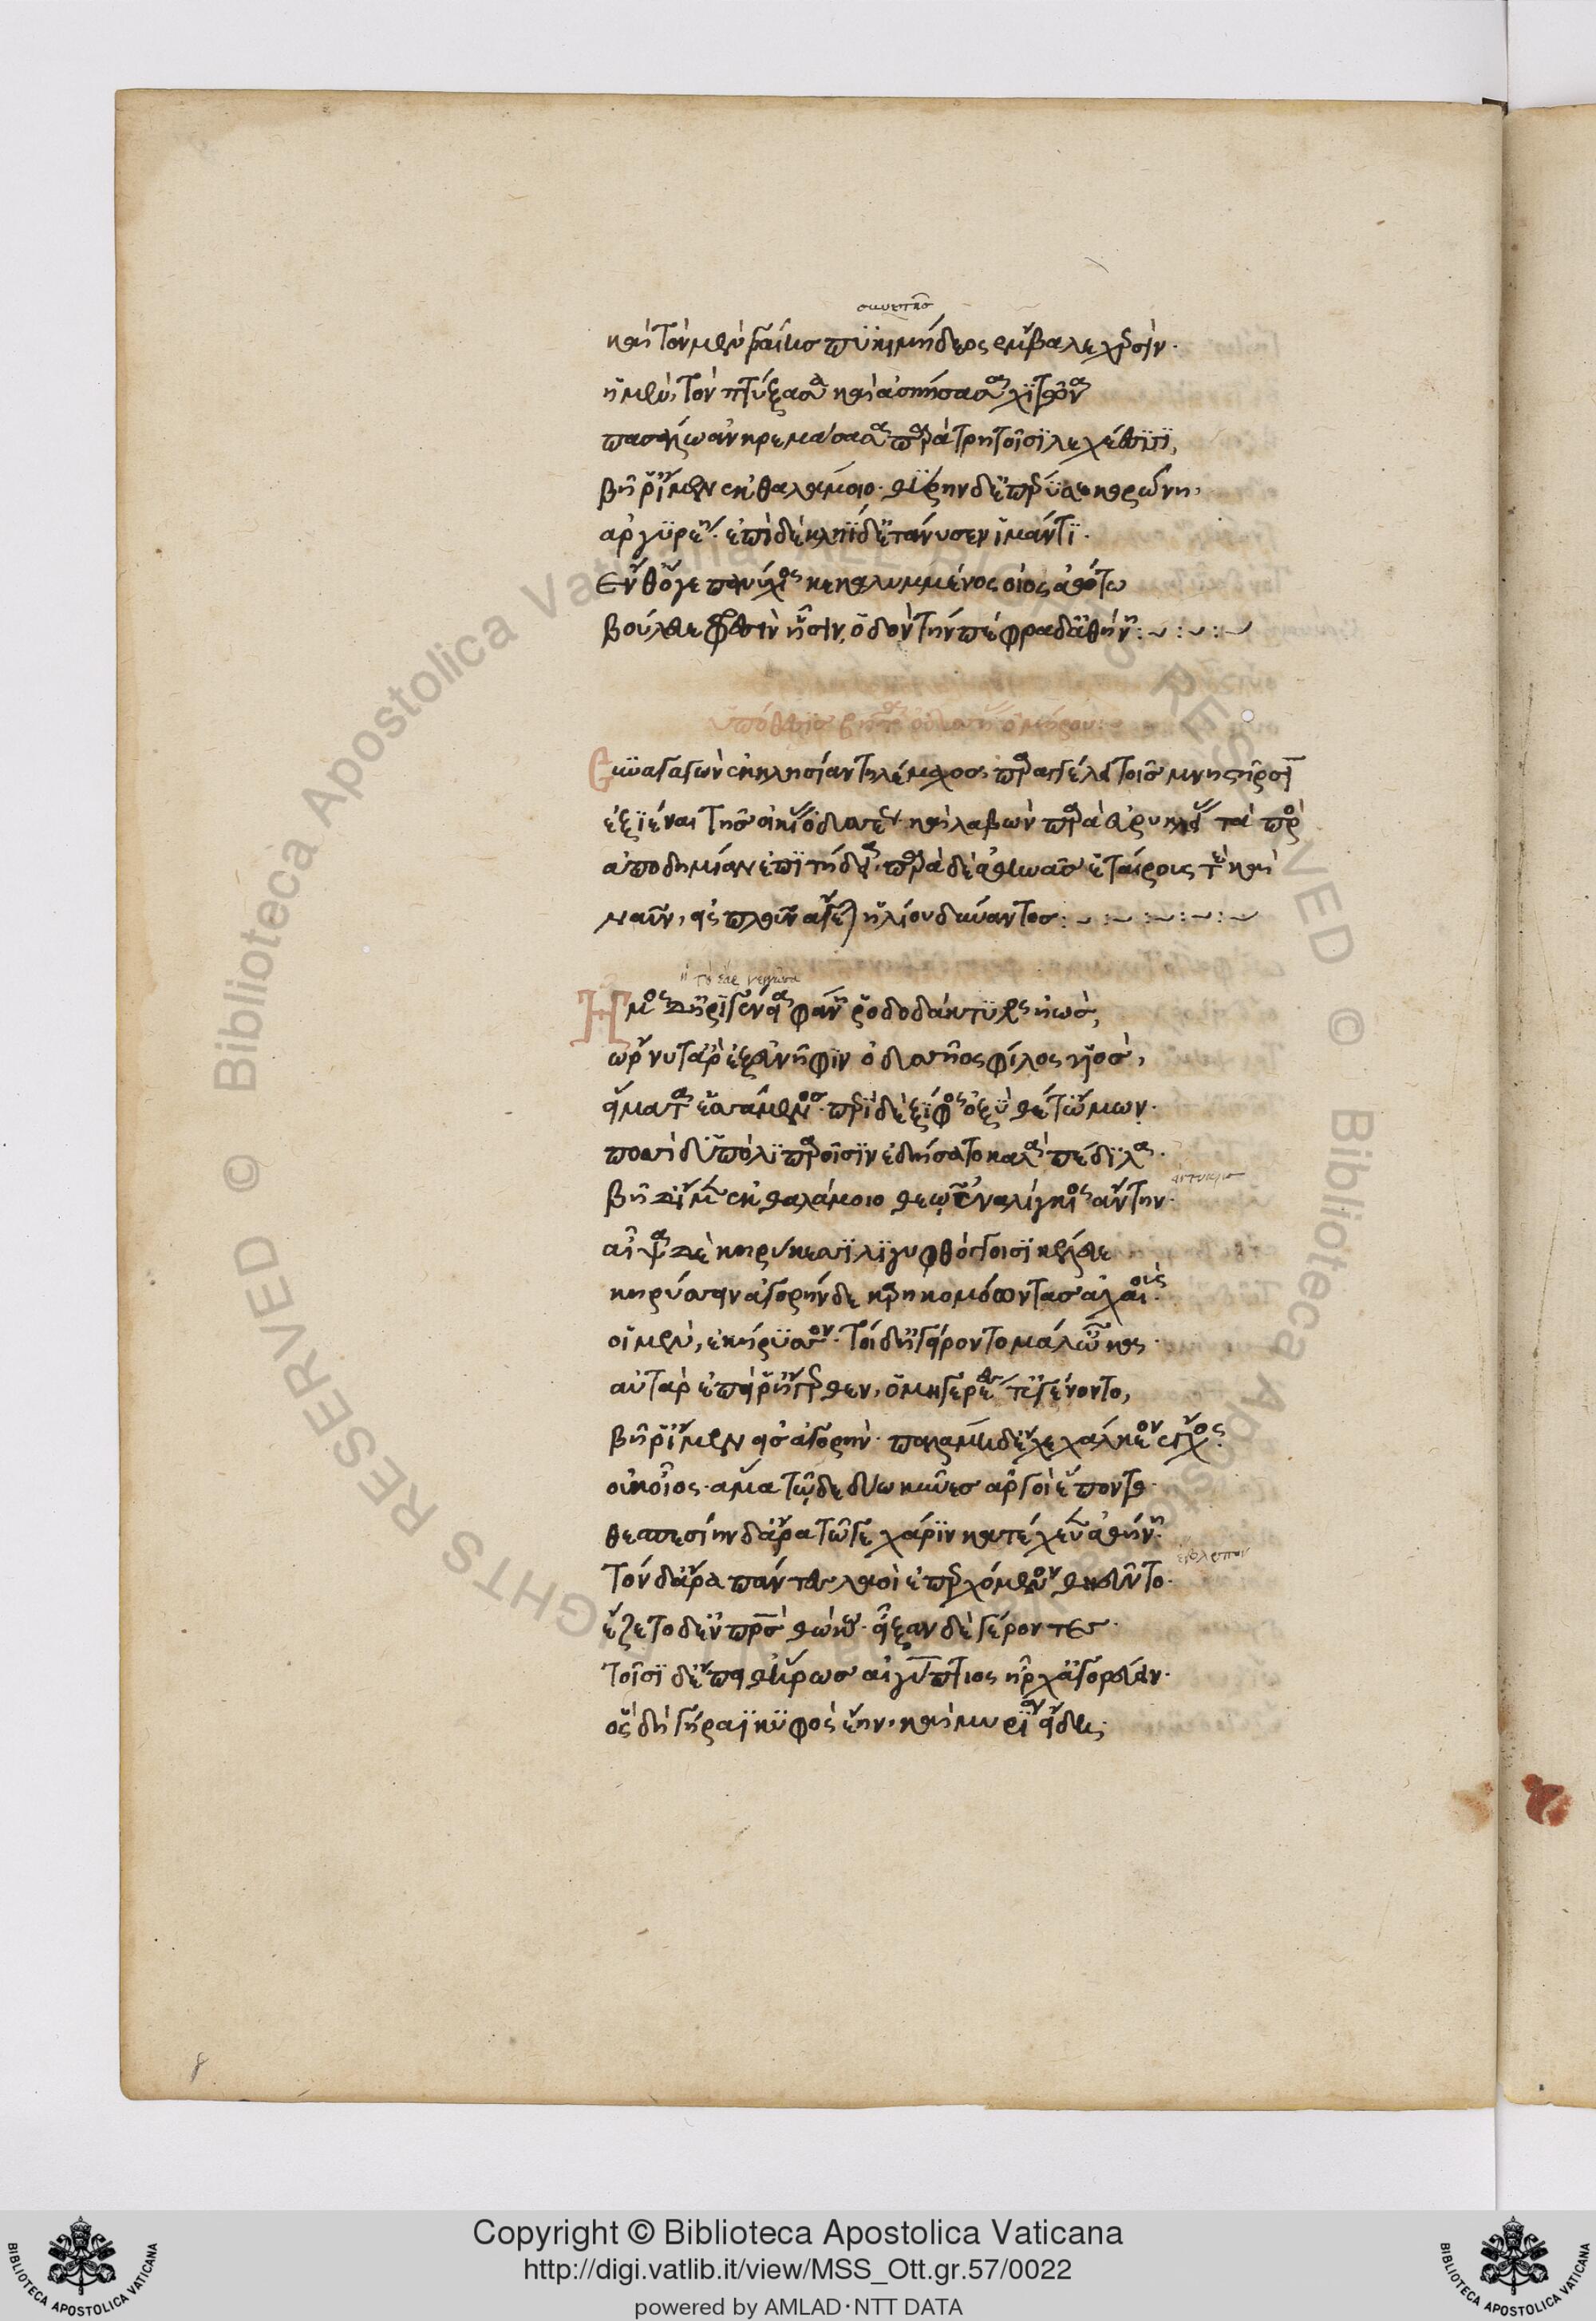 συνετῆς
καὶ τὸν μὲν γραίης πυκιμήδεος ἔμβαλε χερσίν·
ἡ μὲν, τὸν πτύξασα καὶ ἀσκήσασα χιτῶνα
πασσάλω ἀνκρεμάσασα παρὰ τρητοῖσι λεχέεσσι,
βῆ ῥ' ἴμεν ἐκ θαλάμοιο· θύρην δ' ἐπέρυσσε κορώνη,
ἀργυρέη· ἐπὶ δὲ κληῖδ' ἐτάνυσεν ἱμάντι·
ἔνθ' ὅγε παννύχιος κεκαλυμμένος οἰὸς ἀώτω
βούλευε φρεσὶν ᾗσιν, ὁδὸν τὴν πέφραδ' ἀθήνη:~:~:~
ὑπόθεσις βῆτα ὀδυσσείας ὁμήρου:
Συναγαγὼν ἐκκλησίαν τηλέμαχος, παραγγέλλει τοῖς μνηστῆρσι
ἐξιέναι τῆς οἰκίας ὀδυσσέως καὶ λαβὼν παρὰ εὐρυκλείας τὰ πρὸς
ἀποδημίαν ἐπιτήδεια, παρὰ δὲ ἀθηνᾶς ἑταίρους τε καὶ
ναῦν, εἰς πλοῦν ἀνάγεται ἡλίου δύναντος:~:~:~:~
Ἦμος δ' ἠριγένεια φάνη ῥοδοδάκτυλος ἠὼς,
ὤρνυτ' ἄρ' ἐξ εὐνῆφιν ὀδυσσῆος φίλος υἱὸς,
εἵματα ἑσσάμενος· περὶ δὲ ξίφος ὀξὺ θέτ' ὤμων·
ποσσὶ δ' ὑπὸ λιπαροῖσιν ἐδήσατο καλὰ πέδιλα·
βῆ δ' ἴμεν ἐκ θαλάμοιο θεῶ ἐναλίγκιος ἄντην·
αἶψα δὲ κηρύκεσσι λιγυφθόγγοισι κέλευσε
κηρύσσειν ἀγορήνδε καρηκομόωντας ἀχαιούς·
οἱ μὲν, ἐκήρυσσον· τοὶ δ' ἠγείροντο μάλ' ὦκα·
αὐτὰρ ἐπεί ῥ' ἤγερθεν, ὁμηγερέες τ' ἐγένοντο,
βῆ ῥ' ἴμεν εἰς ἀγορὴν· παλάμη δ' ἔχε χάλκεον ἔγχος
οὐκ οἶος· ἅμα τῶδε δύω κύνες ἀργοὶ ἕποντο·
θεσπεσίην δ' ἄρα τῶγε χάριν κατέχευεν ἀθήνη·
τὸν δ' ἄρα πάντες λαοὶ ἐπερχόμενον θηεῦντο·
ἕζετο δ' ἐν πατρὸς θώκω· εἶξαν δὲ γέροντες·
τοῖσι δ' ἔπειθ' ἥρως αἰγύπτιος ἦρχ' ἀγορεύειν·
ὃς δὴ γήραϊ κυφὸς ἔην, καὶ μυρία ᾔδει,
Copyright © Biblioteca Apostolica Vaticana
http://digi.vatlib.it/view/MSS_Ott.gr.57/0022
powered by AMLAD·NTT DATA